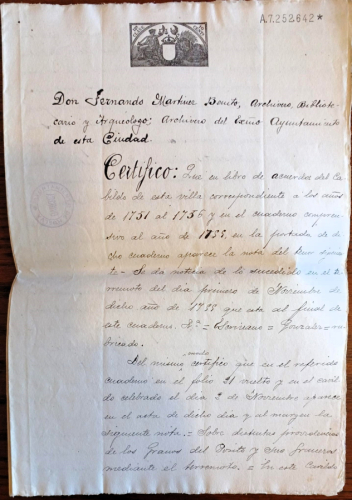 A.7.252.642*
Don Fernando Martinez Benito, Archivero, Bibliote-
cario y Arqueologo; Archivero del Excmo Ayuntamiento
de esta Ciudad.
Certifico: Que en libro de acuerdos del Ca-
bildo de esta villa correspondiente a los años
de 1751 al 1756 y en el cuaderno compren-
sivo al año de 1755, en la portada de di-
cho cuaderno aparece la nota del tenor siguien-
te = Se da noticia de lo sucedido en el te-
rremoto del dia primero de Noviembre de
dicho año de 1755 que esta al final de
este cuaderno. = = Gonzalez =
bricado.
Del mismo certifico que en el referido
cuaderno en el folio 21 vuelto y en el cavil-
do celebrado el dia 2 de Noviembre aparece
en el acta de dicho dia y al margen la
siguiente nota. = Sobre distintas providencias
de los Granos del Posito y
mediante el terremoto. = En este Cavildo